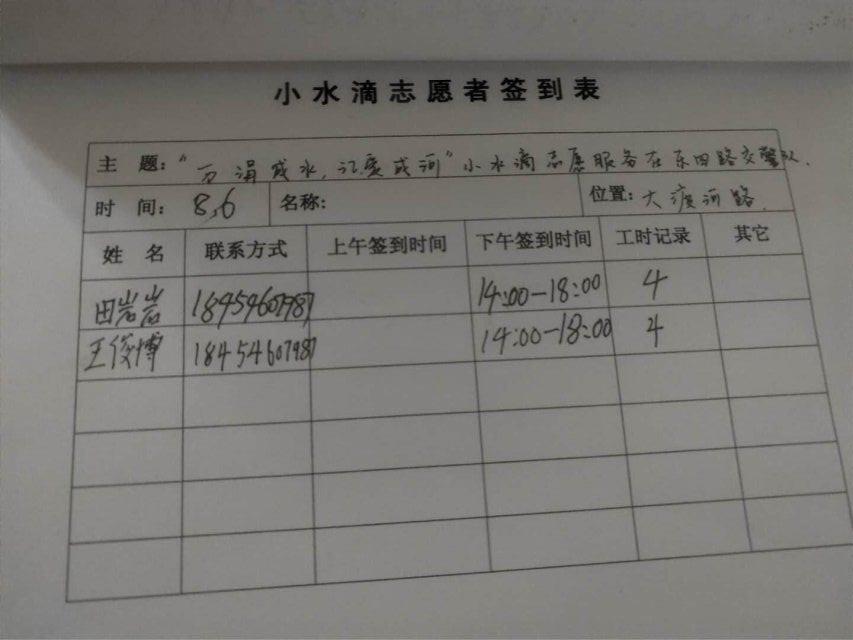 小水滴志愿者签到表
主 题：“万涓成水，汇爱成河”小水滴志愿服务在东四路交警队.
时 间：8.6 名称： 位置：大渡河路
姓 名 联系方式 上午签到时间 下午签到时间 工时记录 其它
田岩岩 18454607987 14:00-18:00 4
王俊博 18454607987 14:00-18:00 4